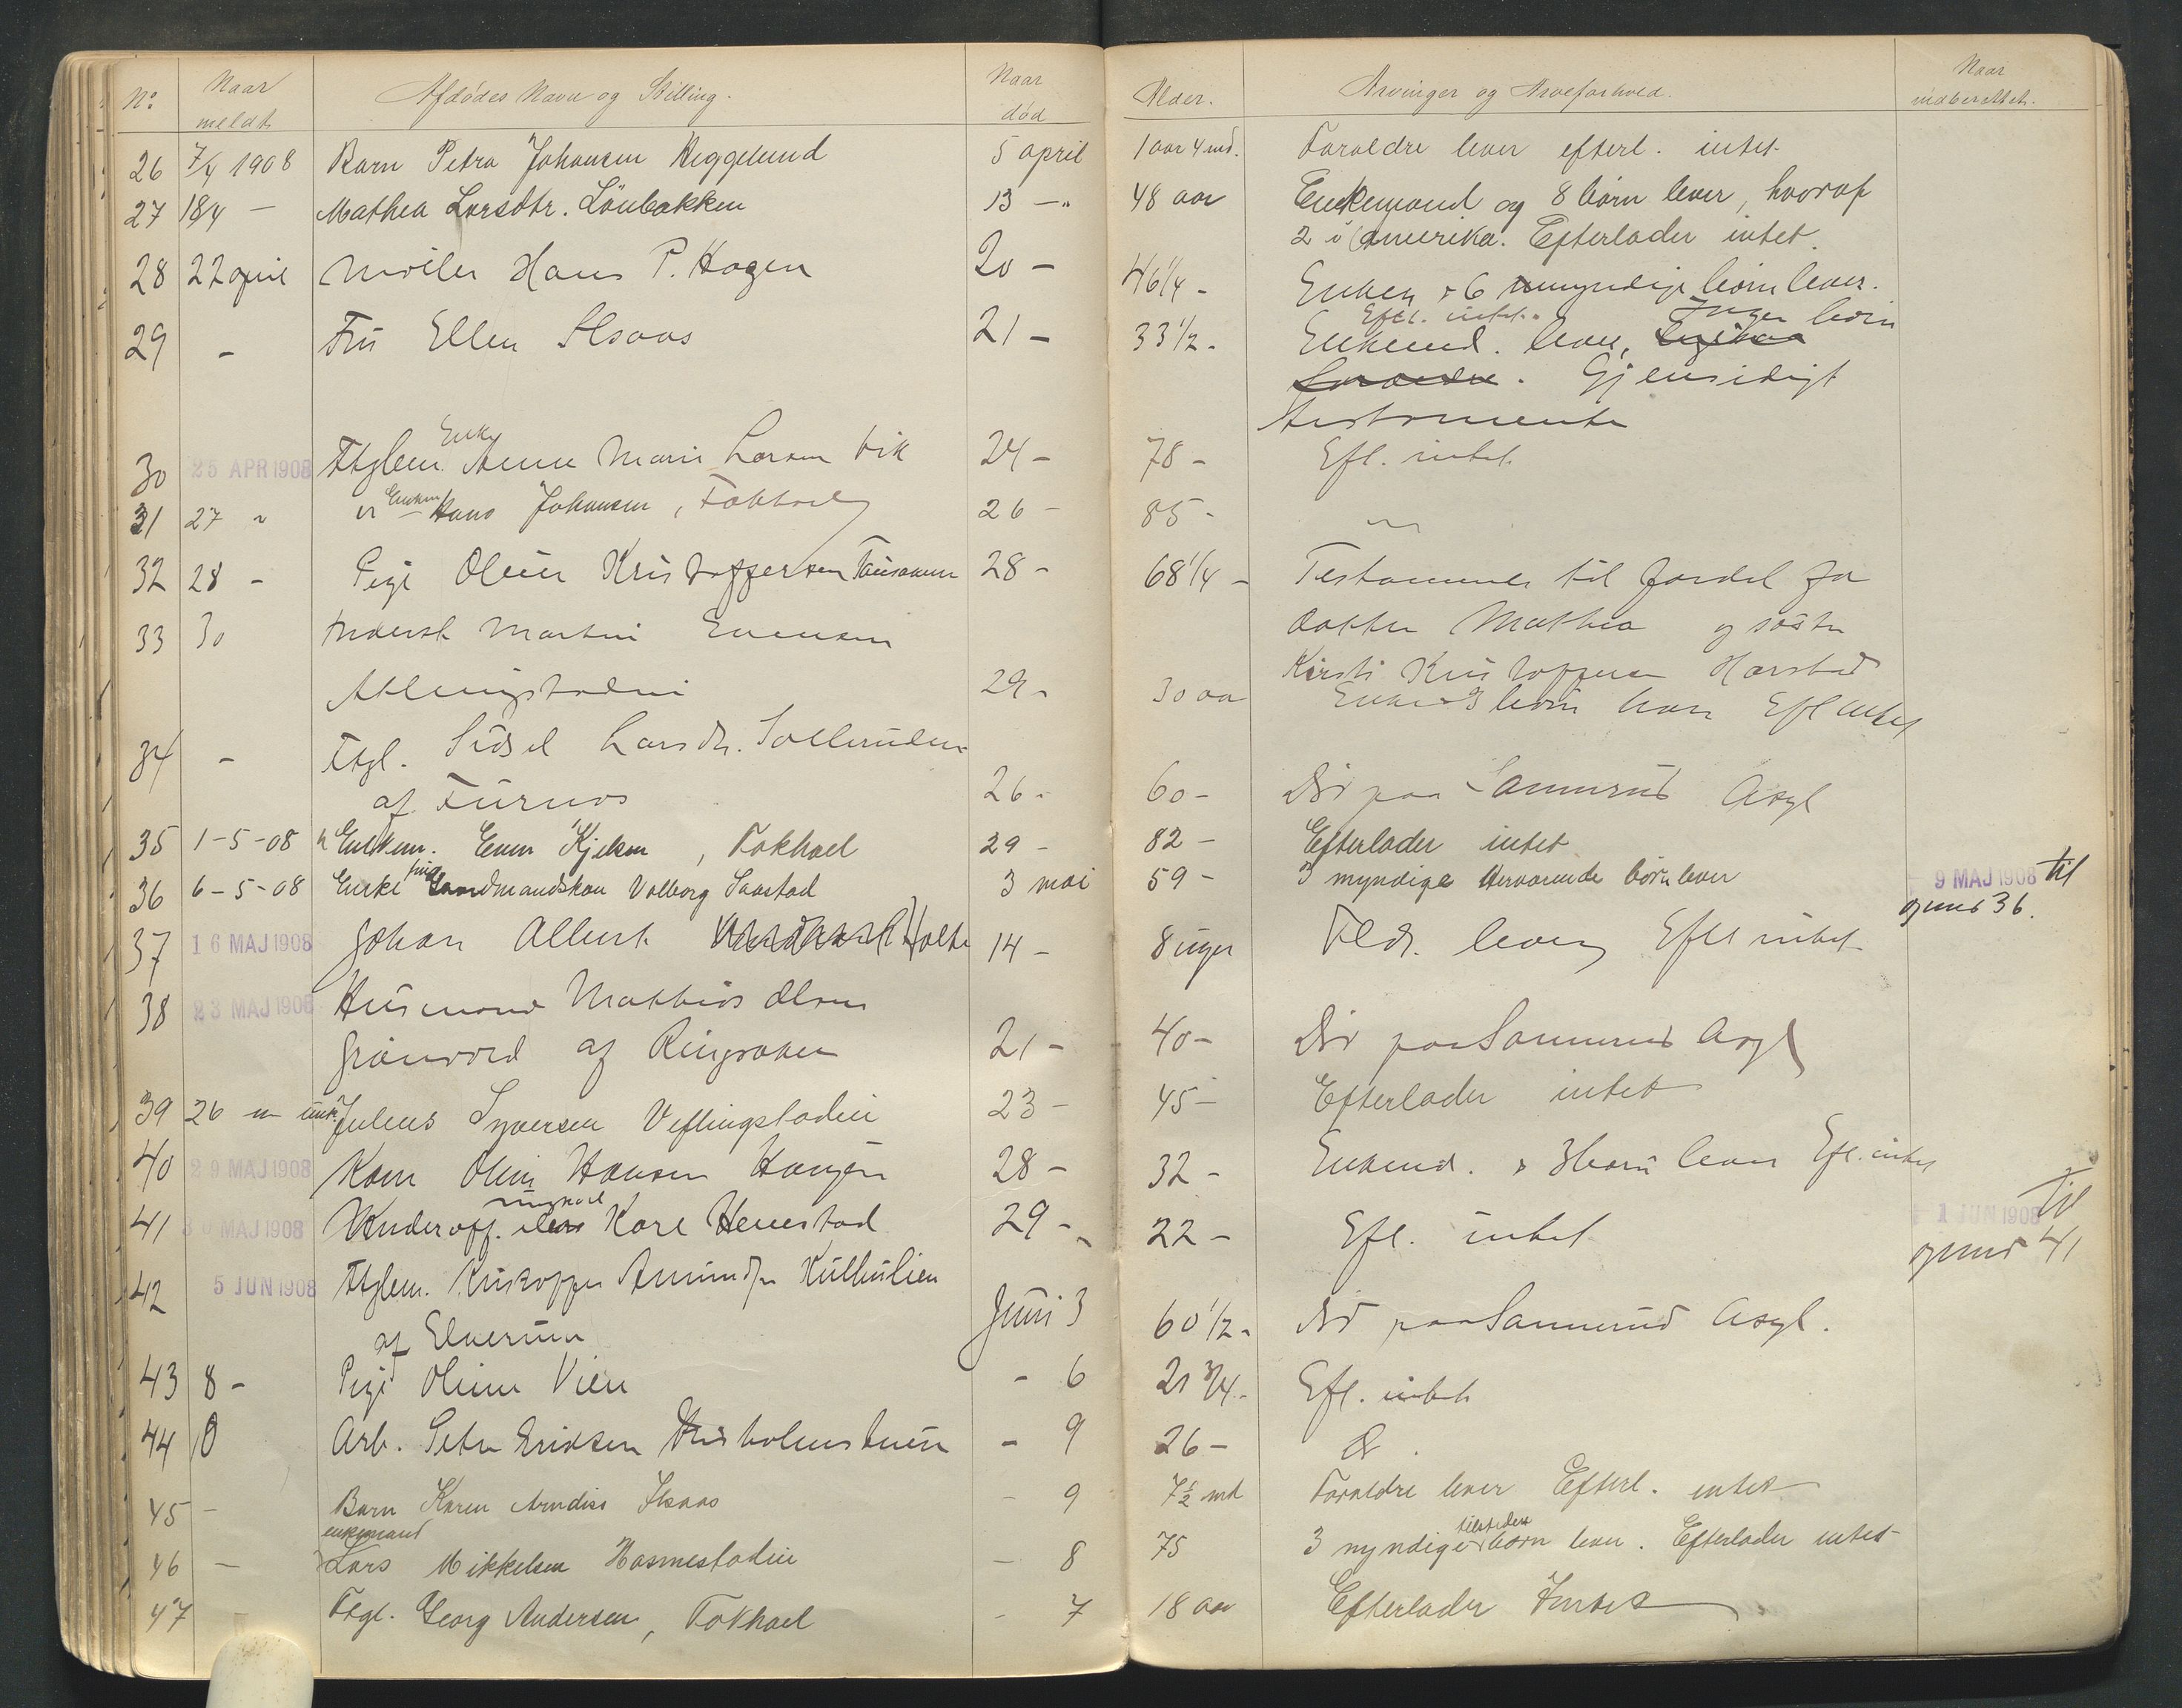 No Naar meldt Afdödes Navn og Stilling. Naar död Alder. Arvinger og Arveforhold. Naar indberettet.
26 7/4 1908 Barn Petra Johansen Heggelund 5 april 1 aar 4 md. Foræeldre lever efterl. intet
27 18/4 — Mathea Larsdtr. Lönbakken 13 —" 48 aar Enkemand og 8 börn lever, hvoraf
2 i Amerika. Efterlader intet.
28 22 april Hans P. Hagen 20 — 46 1/4 - Enken + 6 umyndige börn lever.
Eftl. intet.
29 - Fru Ellen 21 — 33 1/2 - Enkemd. lever, Ingen börn
Gjensidigt
Testamente
30 25 APR 1908 Ftglem. Enke Anne Marie Larsen Vik 24 - 78 - Efl. intet
31 27 " Enkem Hans Johansen, Fokhoel 26 - 85 - "
32 28 - Pige Oline Kristoffersen 28 - 68 1/4 - Testamente til fordel for
33 30 Indersk Martin Evensen datter Mathea og söster
Kirsti Kristoffersen Harstad
29 - 30 aa Enke 3 börn lever Efl intet
34 - Ftgl. Sidsel Larsdr.
af Furnes 26 - 60 - Död paa Sannerud Asyl
35 1-5-08 Enkem. Even Kjelsen, Fokhoel 29 - 82 - Efterlader intet
36 6-5-08 Enke Valborg Saastad 3 mai 59 - 3 myndige herværende börn lever 9 MAJ 1908 til
og med 36.
37 16 MAJ 1908 Johan Albert Holte 14 - 8 uger Fldr. lever Eftl intet
38 23 MAJ 1908 Husmand Mathias Olsen
Grönvold af Ringsaker 21 - 40 - Död paa Sannerud Asyl
39 26 — Julius Syversen Veflingstadie 23 - 45 - Efterlader intet
40 29 MAJ 1908 Kone Oline Hansen Haugen 28 - 32 - Enkemd. + 3 börn lever Efl. intet
41 30 MAJ 1908 Underoff. ungkarl Karl Henestad 29 - 22 - Efl. intet 1 JUN 1908 til
og med 41
42 5 JUN 1908 Ftglem. Kristoffer Amundsen
af Elverum Juni 3 60 1/2 - Död paa Sannerud Asyl.
43 8 - Pige Oline Vien - 6 21 3/4 - Efl. intet
44 10 Arb. Peter Eriksen - 9 26 -
45 - Barn Karen - 9 7 1/2 md Foreldre lever Efterl. intet
46 — enkemand Lars Mikkelsen - 8 75 3 myndige tilstedev börn lever. Efterlader intet
47 Ftgl. Georg Andersen, Fokhoel - 7 18 aar Efterlader Intet